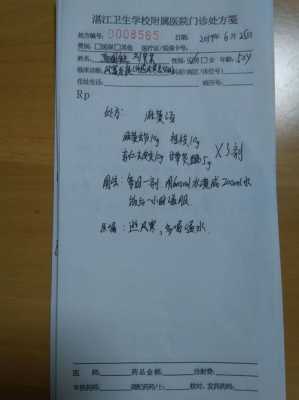 湛江卫生学校附属医院门诊处方笺
处方编号: 0008565 日期: 2019年6月28日
费别: 医保 其他 医疗证/医保卡号:
姓名: 性别: 男 女 年龄: 50岁
临床诊断: 风寒
住址: 电话:
Rp
处方: 麻黄汤
麻黄 10g 桂枝 10g
杏仁 10g 甘草 5g X3剂
用法: 每日一剂 用600ml水煎成200ml水
饭后一小时温服
医嘱: 避风寒, 多喝温水.
医师: 药品金额: 注射费:
审核药师: 调配药师/士: 核对、发药药师: